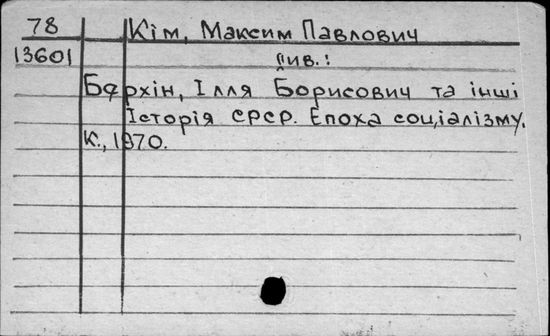 78 Кім, Максим Павлович
13601 див.:
Бєрхін, Ілля Борисович та інші
Історія СРСР. Епоха соціалізму.
К., 1970.